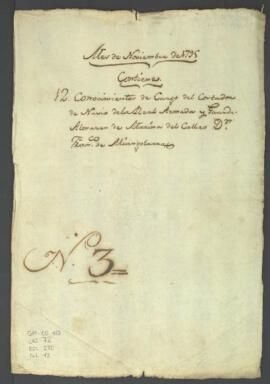 Mes de Noviembre de 1796
Contienes
12. Conocimientos de Cargo del Contador
de Navio de la Real Armada y Guarda
Almacen de Marina del Callao Dn
Franco de
N. 3
GM-CO
CAJ 72
DOC 270
Fol 12